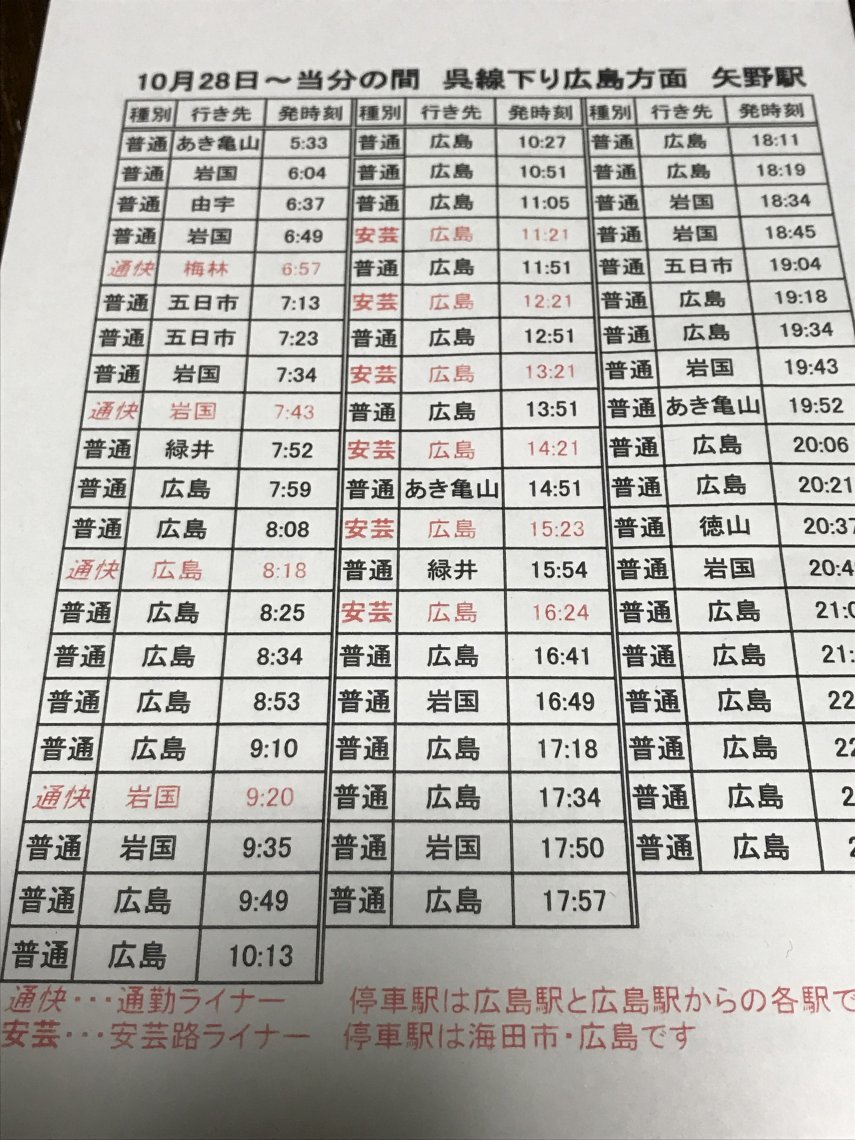 10月28日～当分の間 呉線下り広島方面 矢野駅
種別 行き先 発時刻 種別 行き先 発時刻 種別 行き先 発時刻
普通 あき亀山 5:33 普通 広島 10:27 普通 広島 18:11
普通 岩国 6:04 普通 広島 10:51 普通 広島 18:19
普通 由宇 6:37 普通 広島 11:05 普通 岩国 18:34
普通 岩国 6:49 安芸 広島 11:21 普通 岩国 18:45
通快 梅林 6:57 普通 広島 11:51 普通 五日市 19:04
普通 五日市 7:13 安芸 広島 12:21 普通 広島 19:18
普通 五日市 7:23 普通 広島 12:51 普通 広島 19:34
普通 岩国 7:34 安芸 広島 13:21 普通 岩国 19:43
通快 岩国 7:43 普通 広島 13:51 普通 あき亀山 19:52
普通 緑井 7:52 安芸 広島 14:21 普通 広島 20:06
普通 広島 7:59 普通 あき亀山 14:51 普通 広島 20:21
普通 広島 8:08 安芸 広島 15:23 普通 徳山 20:37
通快 広島 8:18 普通 緑井 15:54 普通 岩国
普通 広島 8:25 安芸 広島 16:24 普通 広島
普通 広島 8:34 普通 広島 16:41 普通 広島
普通 広島 8:53 普通 岩国 16:49 普通 広島
普通 広島 9:10 普通 広島 17:18 普通 広島
通快 岩国 9:20 普通 広島 17:34 普通 広島
普通 岩国 9:35 普通 岩国 17:50 普通 広島
普通 広島 9:49 普通 広島 17:57
普通 広島 10:13
通快・・・通勤ライナー 停車駅は広島駅と広島駅からの各駅で
安芸・・・安芸路ライナー 停車駅は海田市・広島です